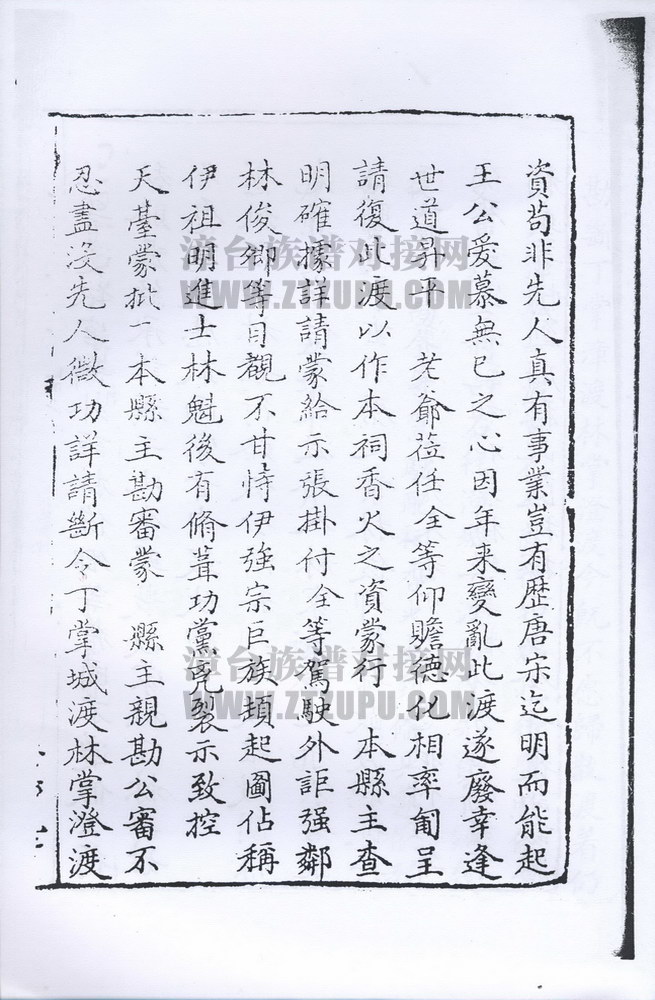 資苟非先人真有事業豈有歷唐宋迄明而能起
王公爱慕無已之心因年来變亂此渡遂廢幸逢
世道昇平 老爺莅任全等仰贍德化相率匍呈
請復此渡以作本祠香火之資蒙行 本縣主查
明確據詳請蒙給示張掛付全等駕駛外詎强鄰
林俊卿等目覩不甘恃伊強宗巨族頓起圖佔稱
伊祖明進士林魁後有脩葺功黨兇裂示致控
天臺蒙批一本縣主勘審蒙 縣主親勘公審不
忍盡沒先人微功詳請斷令丁掌城渡林掌澄渡
漳台族谱对接网
WWW.ZTZUPU.COM
漳台族谱对接网
WWW.ZTZUPU.COM